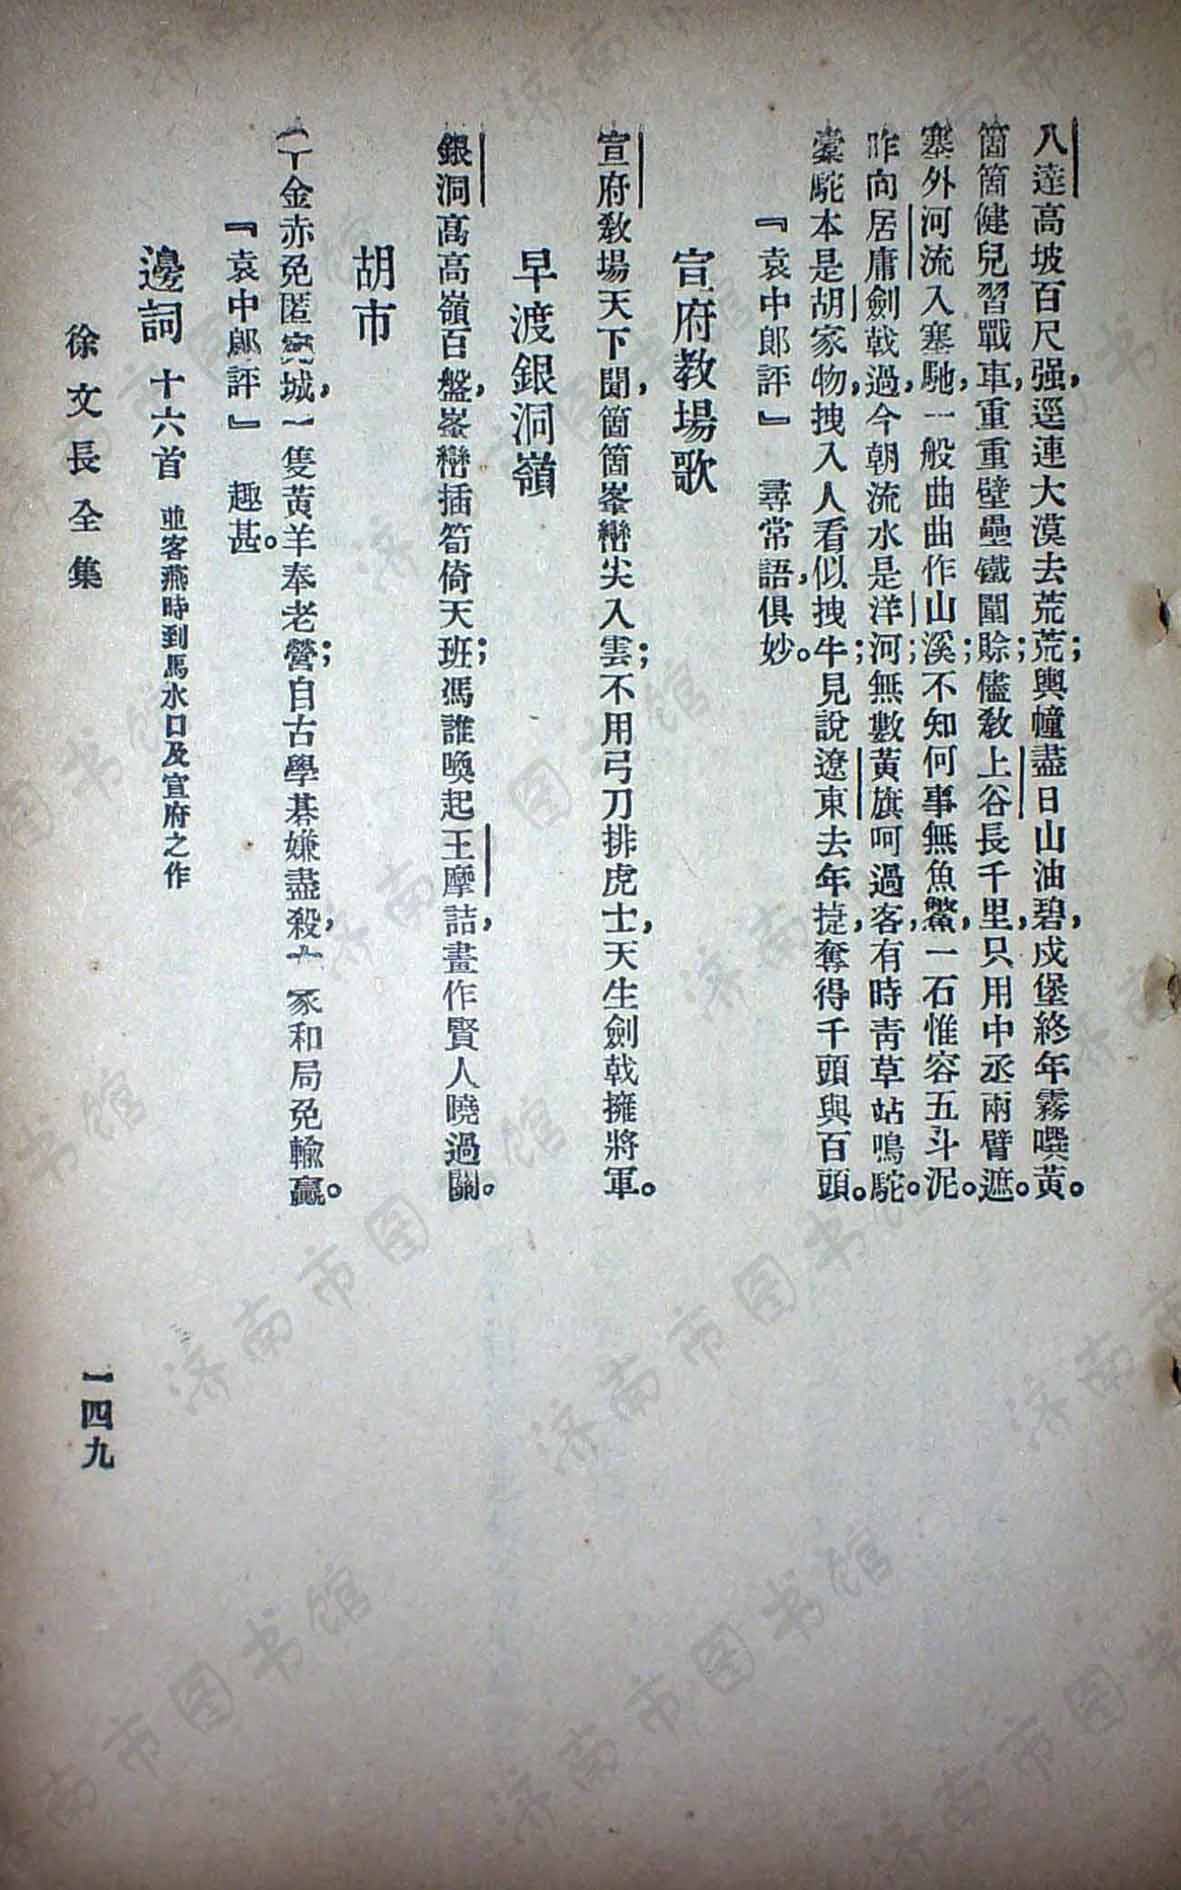 八達高坡百尺强，逕連大漠去荒荒；輿幢盡日山油碧，戍堡終年霧噀黃。
箇箇健兒習戰車，重重壁壘鐵圍賒；儘教上谷長千里，只用中丞兩臂遮。
塞外河流入塞馳，一般曲曲作山溪；不知何事無魚鱉，一石惟容五斗泥。
昨向居庸劍戟過，今朝流水是洋河；無數黃旗呵過客，有時靑草站鳴駝。
橐駝本是胡家物，拽入人看似拽牛；見說遼東去年捷，奪得千頭與百頭。
『袁中郎評』　尋常語，俱妙。
宣府教場歌
宣府教場天下聞，箇箇峯巒尖入雲；不用弓刀排虎士，天生劍戟擁將軍。
早渡銀洞嶺
銀洞高高嶺百盤，峯巒插筍倚天班；馮誰喚起王摩詰，畫作賢人曉過關。
胡市
千金赤兔匿宛城，一隻黃羊奉老營；自古學碁嫌盡殺，大家和局免輸贏。
『袁中郎評』　趣甚。
邊詞　十六首　並客燕時到馬水口及宣府之作
徐文長全集
一四九
济南市图书馆